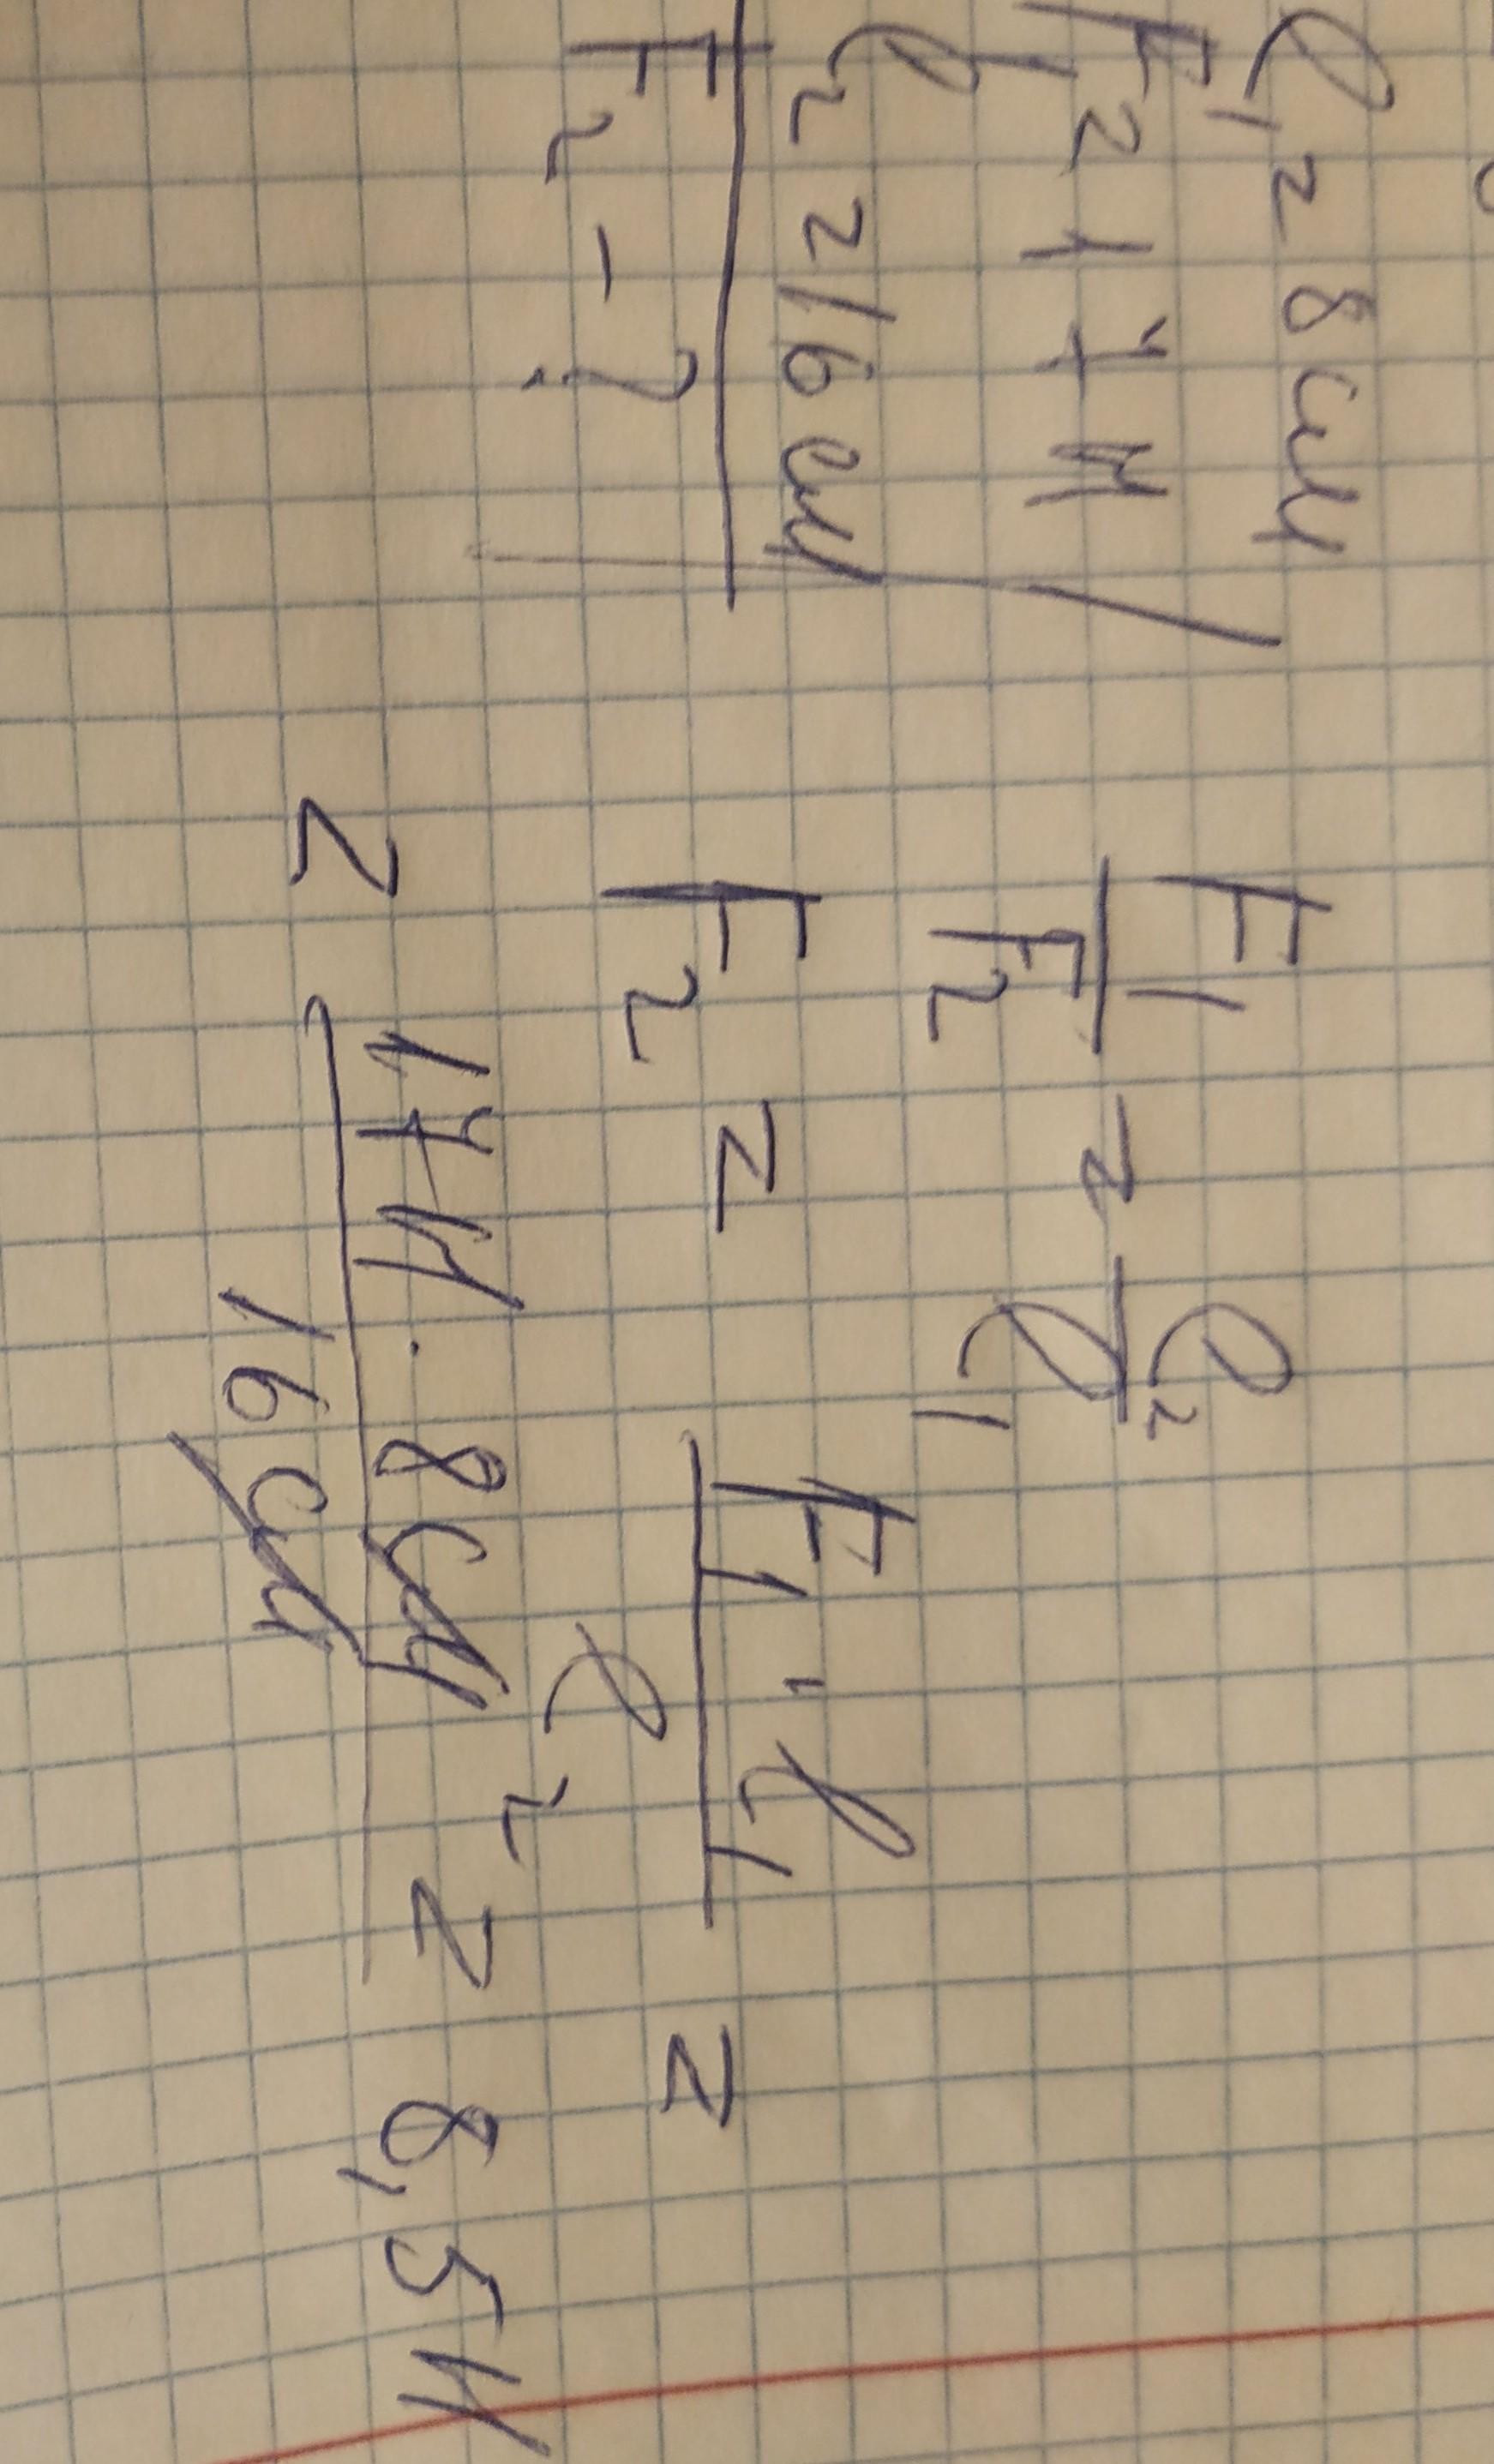 l₁ = 8 см
F₁ = 17 Н
l₂ = 16 см
F₂ - ?
F₁/F₂ = l₂/l₁
F₂ = F₁ · l₁ / l₂ =
= 17 Н · 8 см / 16 см = 8,5 Н